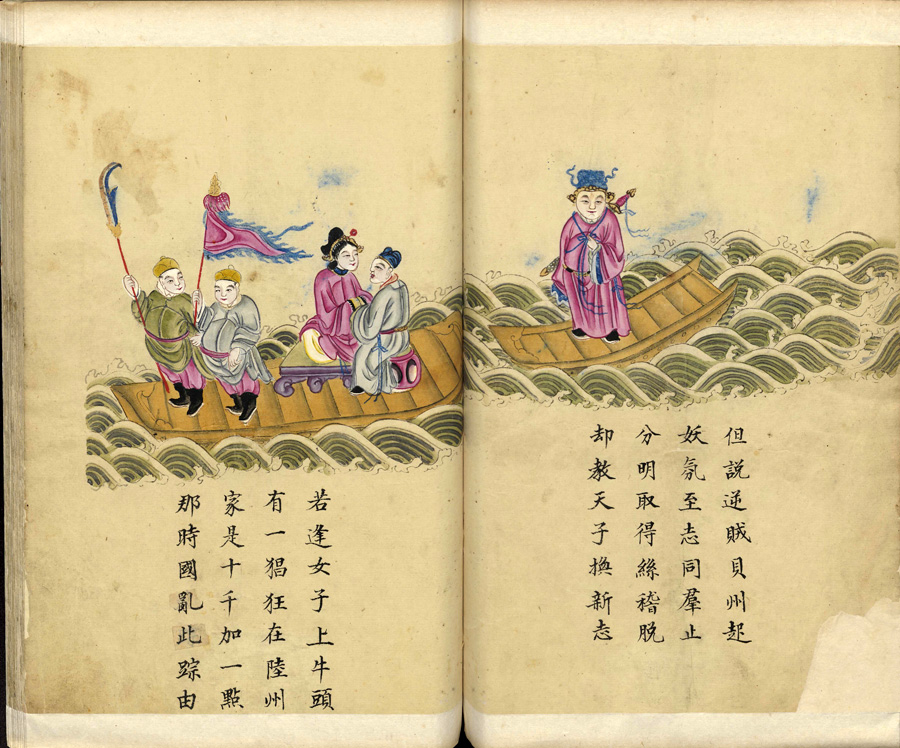 但說逆賊貝州起
妖氛至志同羣止
分明取得絲稽脱
却教天子換新志
若逢女子上牛頭
有一猖狂在陸州
家是十千加一點
那時國亂此踪由